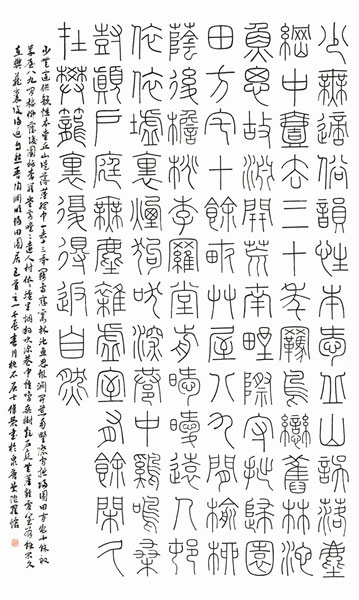 少無適俗韻性本愛丘山誤落塵
網中壹去三十年羈鳥戀舊林池
魚思故淵開荒南野際守拙歸園
田方宅十餘畝草屋八九間榆柳
蔭後檐桃李羅堂前曖曖遠人邨
依依墟裏煙狗吠深巷中雞鳴桑
樹顛戶庭無塵雜虛室有餘閒久
在樊籠裏復得返自然
少無適俗韻性本愛丘山誤落塵網中一去三十年羈鳥戀舊林池魚思故淵開荒南野際守拙歸園田方宅十餘畝
草屋八九間榆柳蔭後園桃李羅堂前曖曖遠人村依依墟里煙狗吠深巷中雞鳴桑樹顛戶庭無塵雜虛室有餘閒久
在樊籠裏復得返自然晉陶淵明歸田園居五首之一